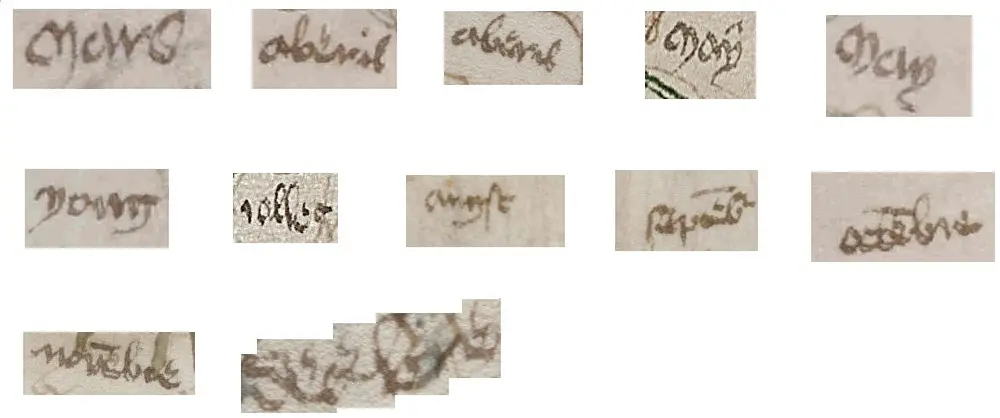 mars aberil aberil may may
yony iollet augst septēb octēbre
novēbre